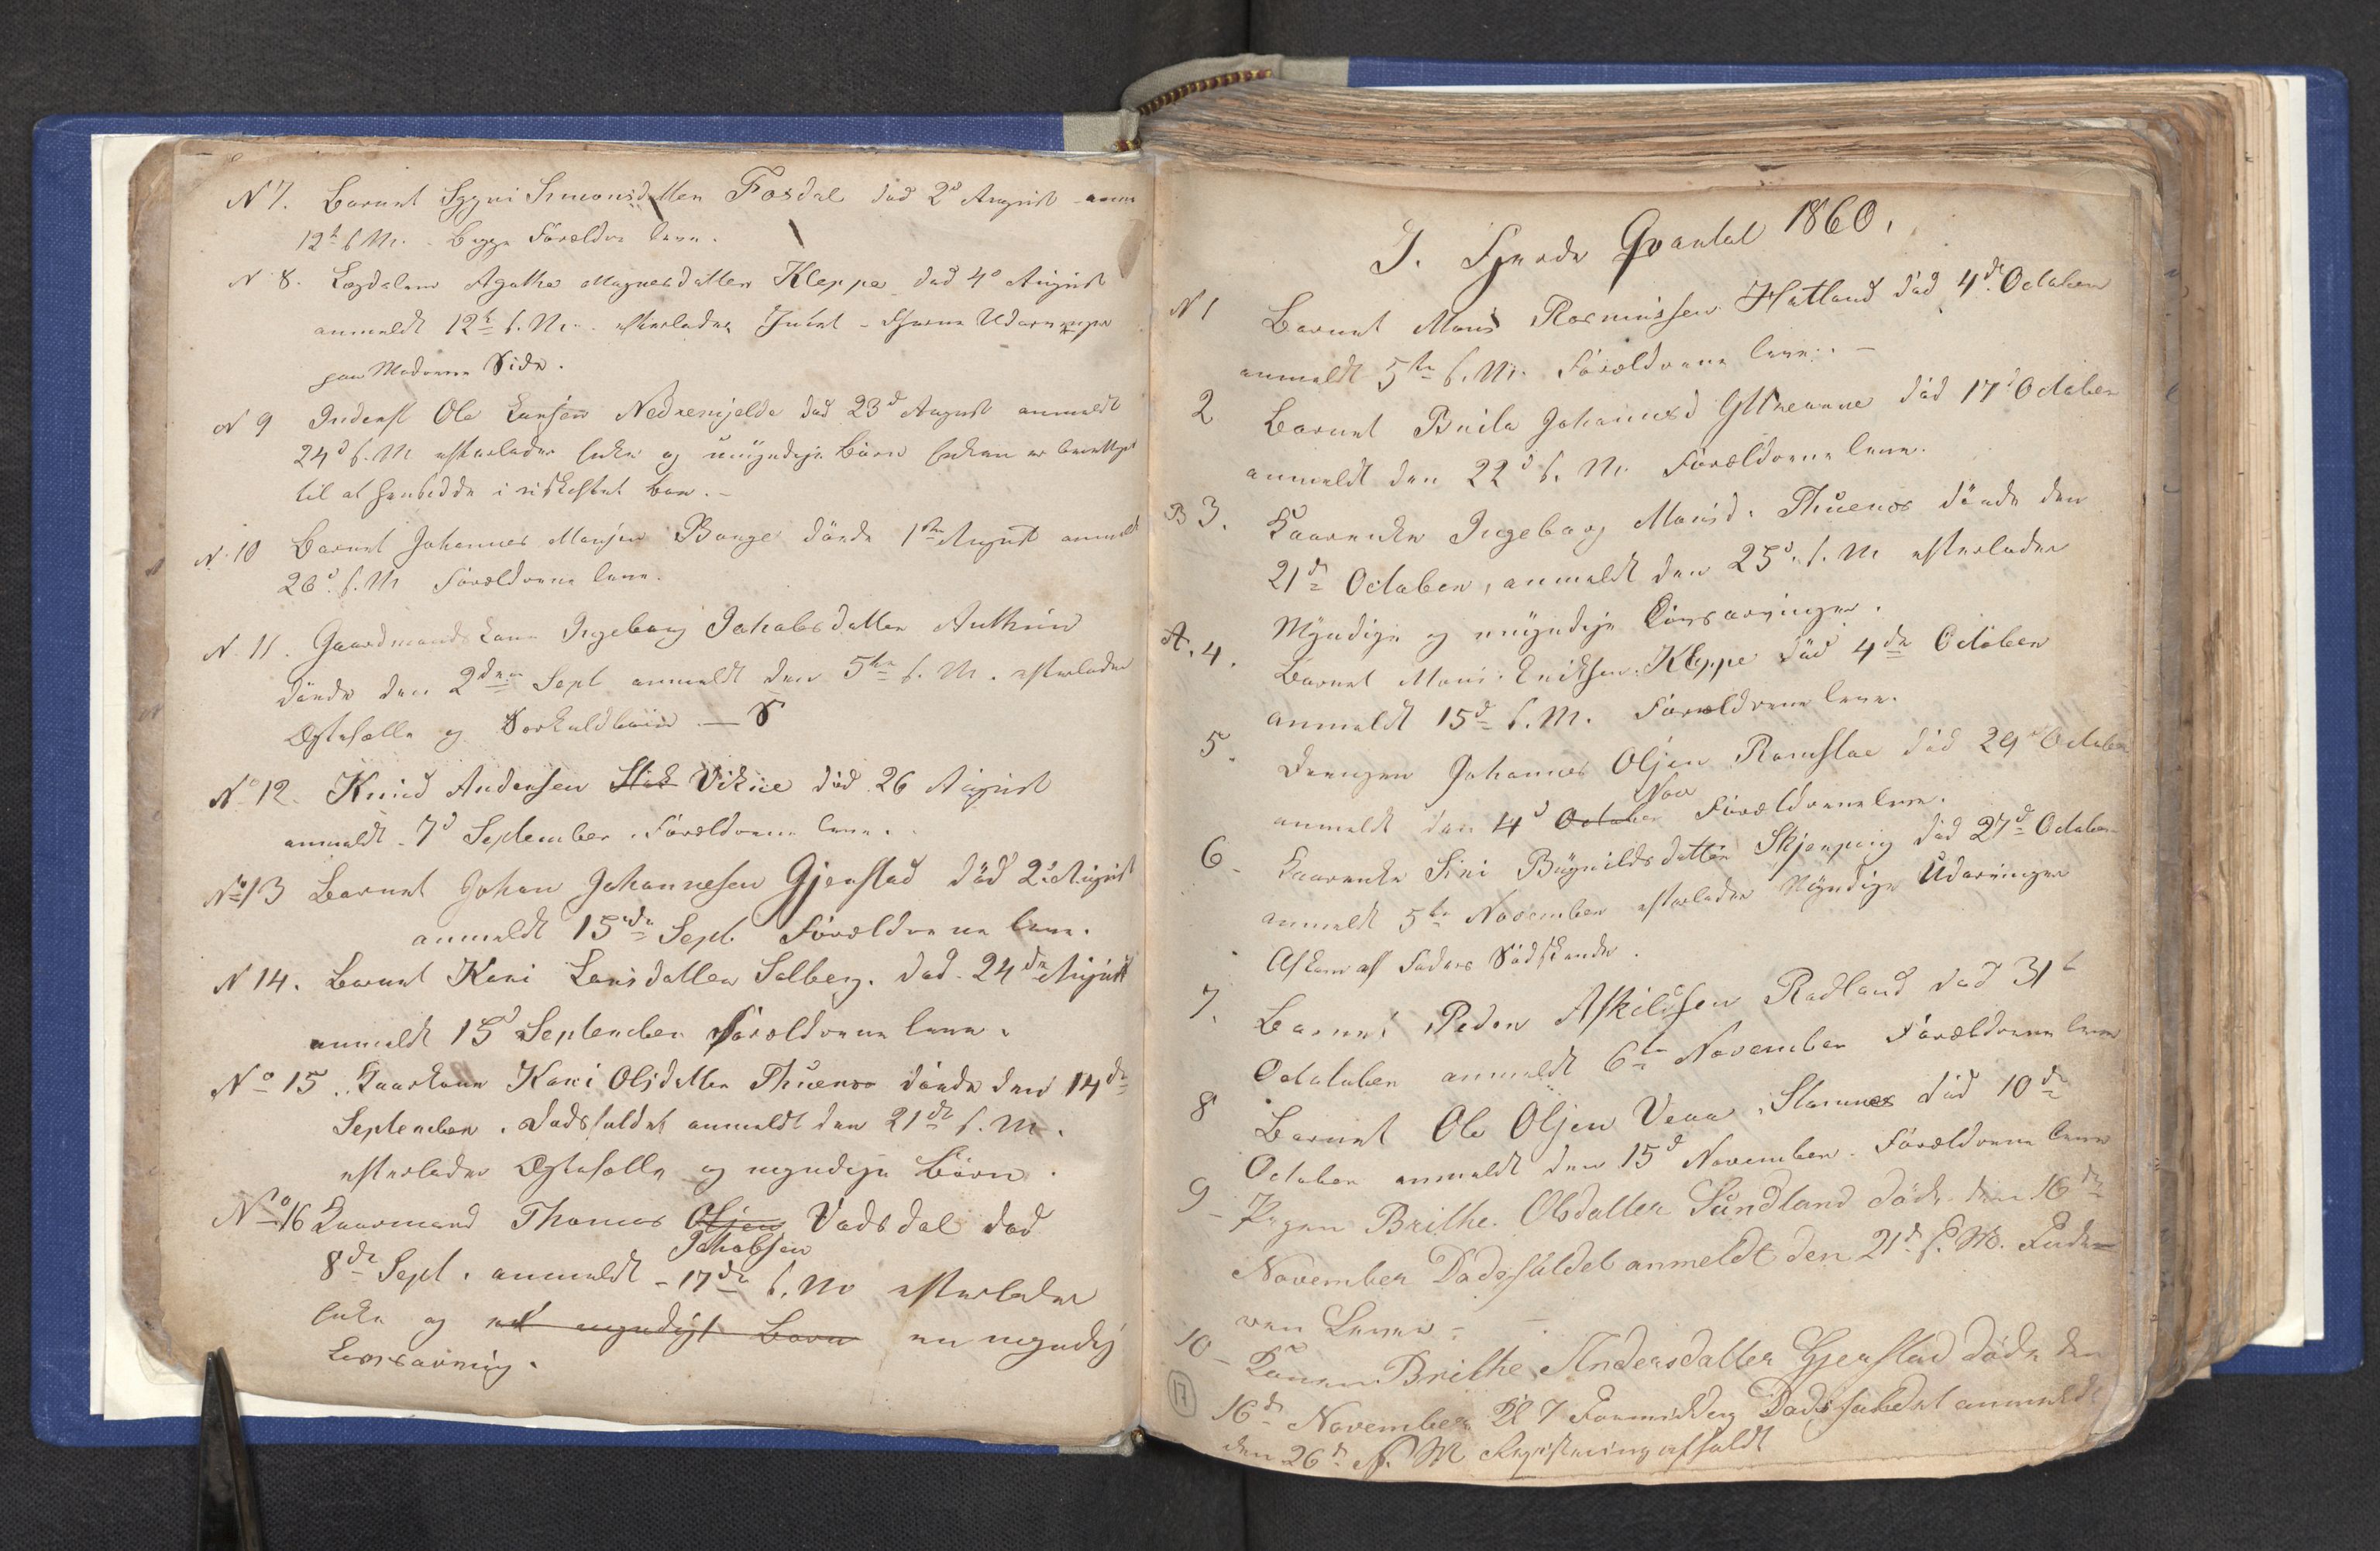 N 7. Barnet Sygni Simonsdatter Fosdal död 2d August anm
12te s. M. Begge Forældre lever.
N 8. Lægdslem Agathe Magnesdatter Kleppe död 4d August
anmeldt 12te s. M. efterlader Intet - fjerne Udarvinger
paa Moderens Side.
N 9 Inderst Ole Larsen Nedremjelde död 23d August anmeldt
24d s. M efterlader Enke og umyndige Börn Enken er berettiget
til at hensidde i uskiftet boe. -
N. 10 Barnet Johannes Monsen Bauge döde 1ste August anmeldt
26d s. M Forældrene lever.
N. 11. Gaardmandskone Ingeborg Jakobsdatter
döde den 2den Sept anmeldt den 5te s. M. efterlader
Ægtefælle og
No 12. Knud Andersen Vikne död 26 August
anmeldt 7d September. Forældrene lever.
No 13 Barnet Johan Johannesen Gjerstad död 2d August
anmeldt 15de Sept. Forældrene lever.
N 14. Barnet Kari Larsdatter Solberg. död 24de August
anmeldt 15d September Forældrene lever.
No 15. Kaarkone Kari Olsdatter Thuenes döde den 14de
September. Dödsfaldet anmeldt den 21de s. M.
efterlader Ægtefælle og myndige Börn.
No 16 Kaarmand Thomas Olsen Vadsdal död
Jakobsen
8de Sept. anmeldt - 17de s. M efterlader
Enke og et myndigt Barn en myndig
Livsarving.
I. Fjerde Qvartal 1860.
N 1 Barnet Mons Rasmussen Hatland död 4de October
anmeldt 5te s. M. Forældrene lever. -
2 Barnet Johannesd död 17d October
anmeldt den 22d s. M. Forældrene lever.
B 3. Kaarenke Ingeborg Monsd. Thuenes döde den
21de October, anmeldt den 25d s. M efterlader
Myndige og umyndige Livsarvinger.
A. 4. Barnet Mons Eriksen Kleppe död 4de October
anmeldt 15d s. M. Forældrene lever.
5. Drengen Johannes Olsen död 29d October
Nov
anmeldt den 4d October Forældrene lever.
6 - Kaarenke Siri Brynildsdatter Skjerping död 27d October
anmeldt 5te November efterlader Myndige Udarvinger
Afkom af Faders Södskende.
7. Barnet Peder Askildsen Rodland död 31te
Octotober anmeldt 6te November Forældrene lever
8 Barnet Ole Olsen Veaa, Stamnes död 10de
October anmeldt den 15d November. Forældrene lever
9 - Pigen Brithe Olsdatter Sundland döde den 16de
November Dödsfaldet anmeldt den 21d s. M.
10 - Konen Brithe Andersdatter Gjerstad döde den
16d November Kl 7 Formiddag Dödsfaldet anmeldt
den 26d s. M Registrering afholdt
17